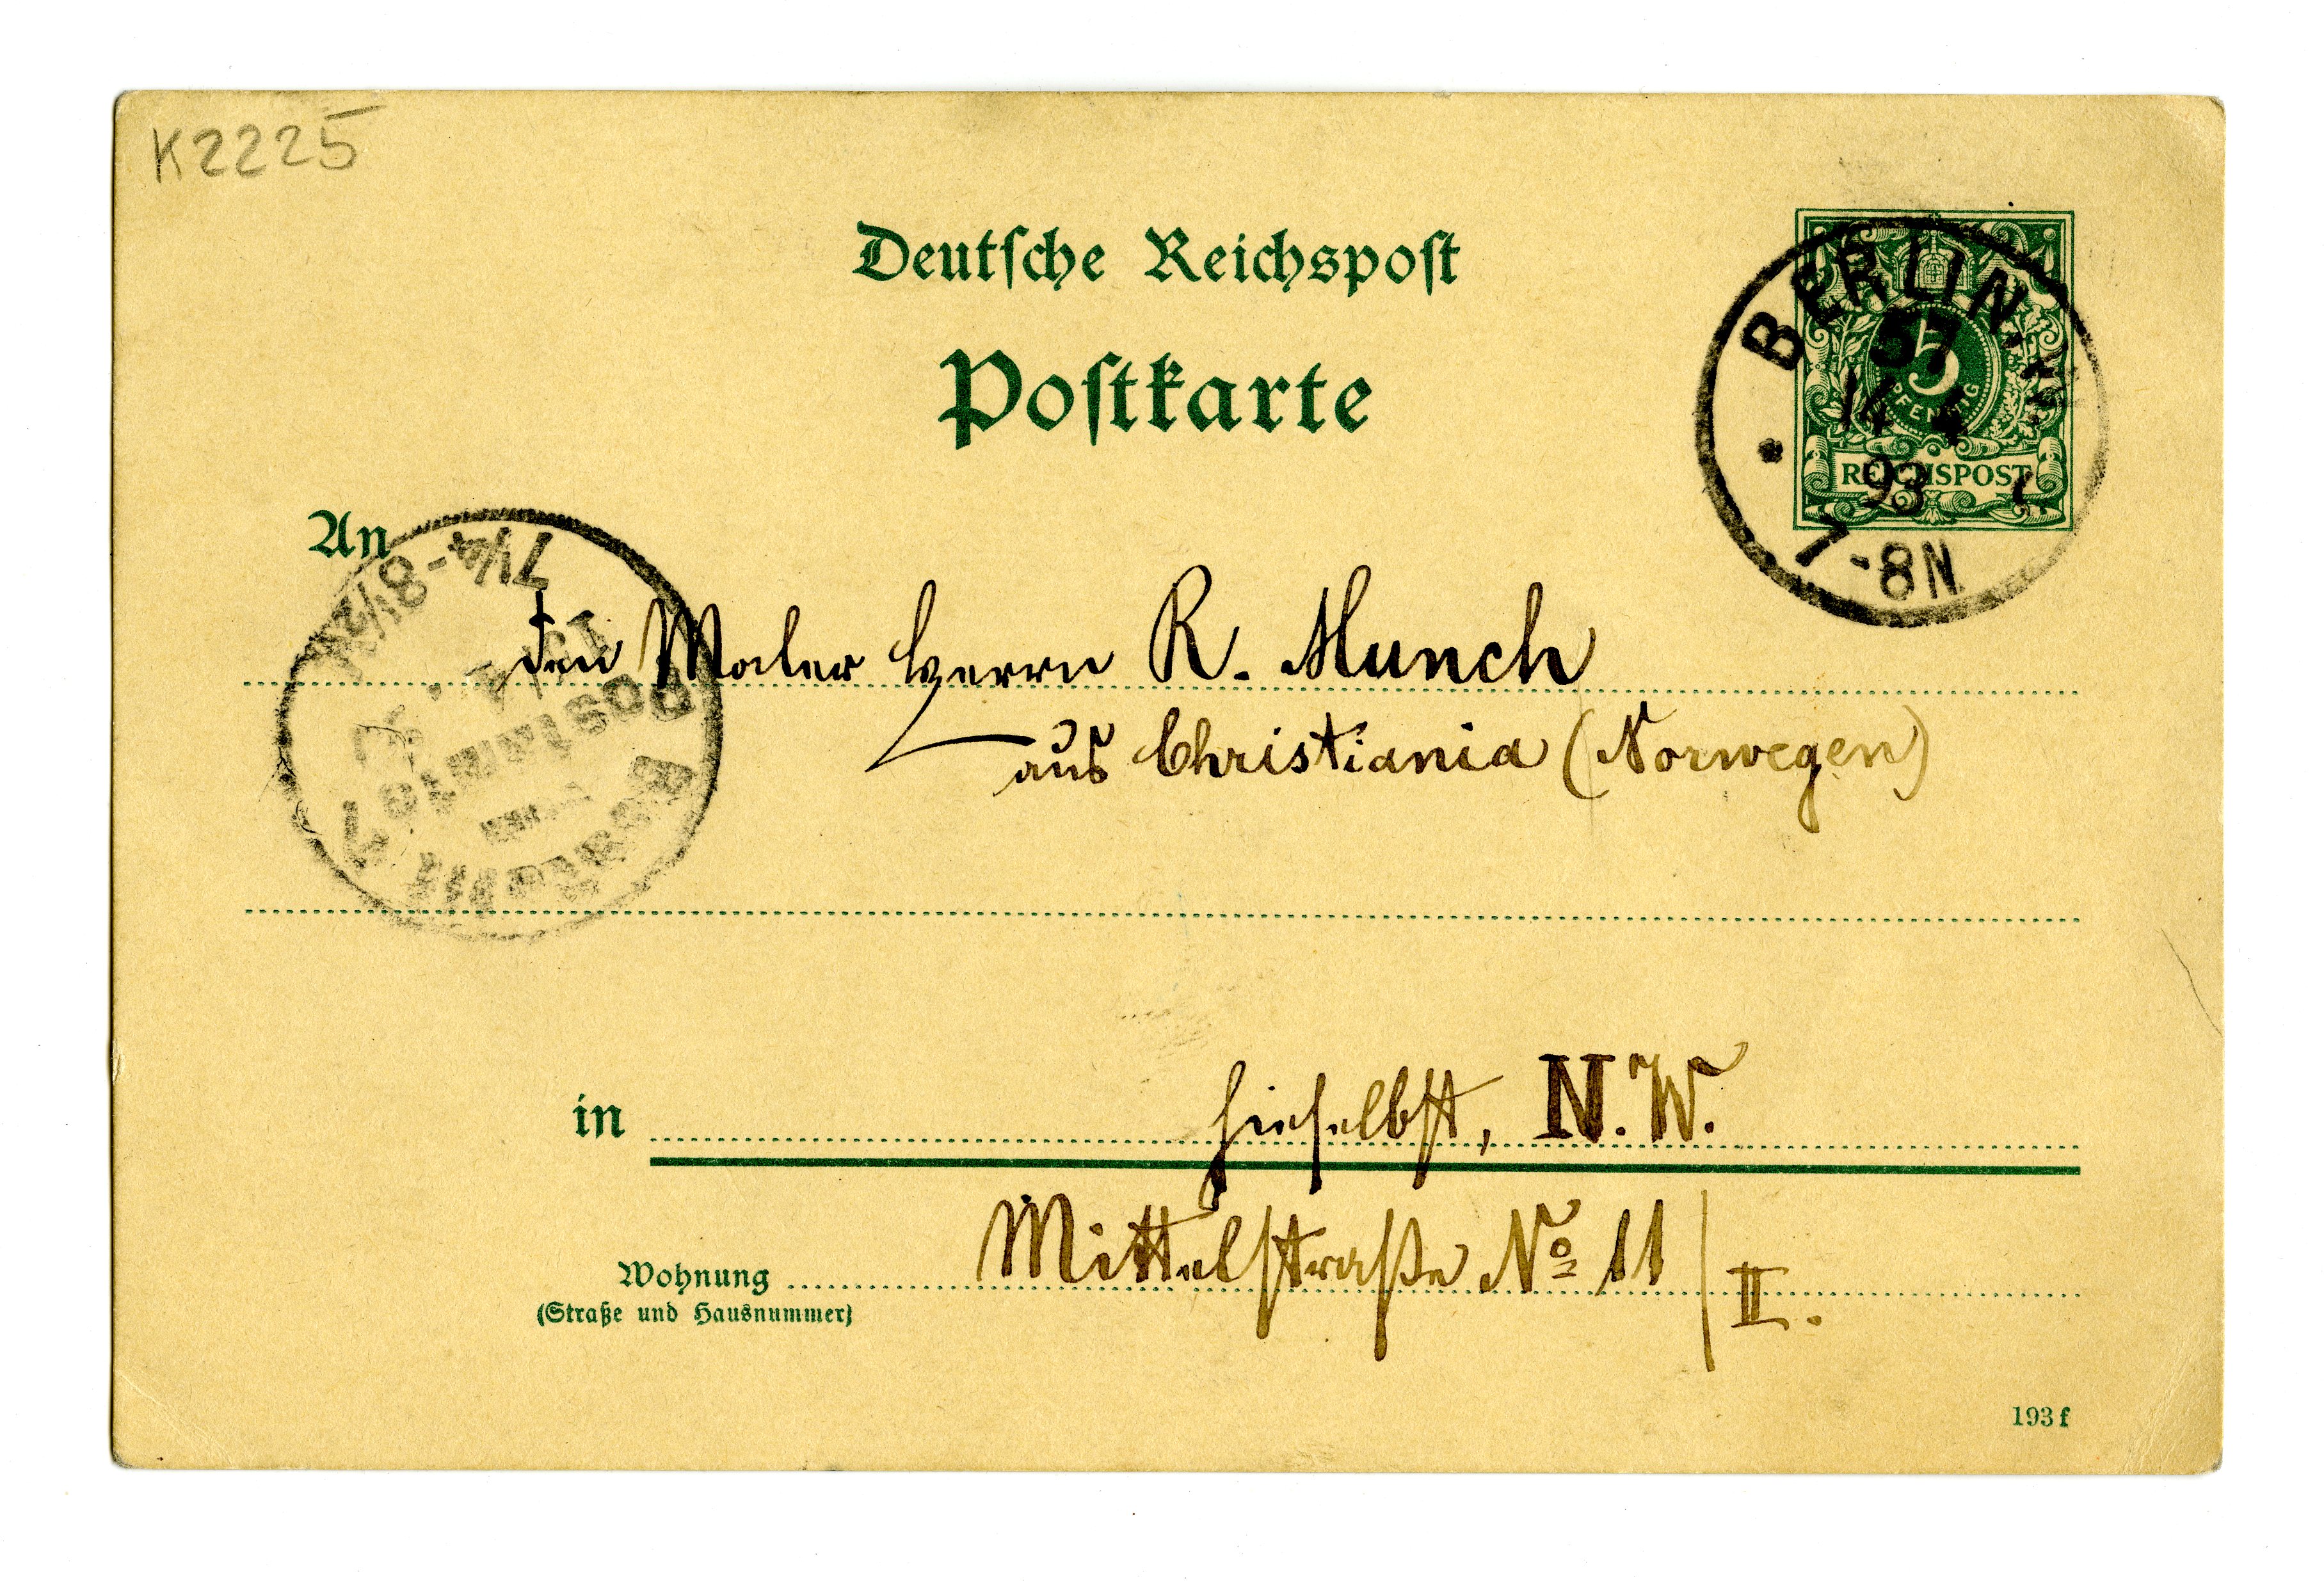 K2225
Deutsche Reichspost
Postkarte
BERLIN
57
14 4
93
7-8N
5
PFENNIG
REICHSPOST
An
7¼-8½
Postamt 7
Bestellt
den Maler Herrn R. Munch
aus Christiania (Norwegen)
in hieselbst, N.W.
Wohnung Mittelstraße No 11/II.
(Straße und Hausnummer)
193 f